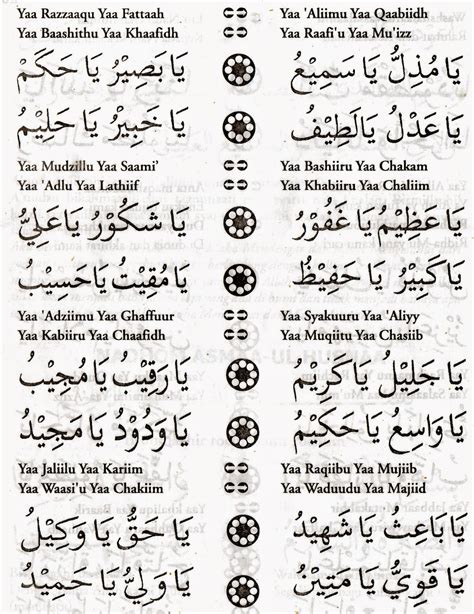 Yaa Razzaaqu Yaa Fattaah Yaa 'Aliimu Yaa Qaabiidh
Yaa Baashithu Yaa Khaafidh Yaa Raafi'u Yaa Mu'izz
يَا مُذِلُّ يَا سَمِيْعُ يَا بَصِيْرُ يَا حَكَمْ
يَا عَدْلُ يَالَطِيْفُ يَا خَبِيْرُ يَا حَلِيْمُ
Yaa Mudzillu Yaa Saami' Yaa Bashiiru Yaa Chakam
Yaa 'Adlu Yaa Lathiif Yaa Khabiiru Yaa Chaliim
يَا عَظِيْمُ يَا غَفُوْرُ يَا شَكُوْرُ يَاعَلِيُّ
يَا كَبِيْرُ يَا حَفِيْظُ يَا مُقِيْتُ يَاحَسِيْبُ
Yaa 'Adziimu Yaa Ghaffuur Yaa Syakuuru Yaa 'Aliyy
Yaa Kabiiru Yaa Chaafidh Yaa Muqiitu Yaa Chasiib
يَا جَلِيْلُ يَا كَرِيْمُ يَا رَقِيْبُ يَا مُجِيْبُ
يَا وَاسِعُ يَا حَكِيْمُ يَا وَدُوْدُ يَا مَجِيْدُ
Yaa Jaliilu Yaa Kariim Yaa Raqiibu Yaa Mujiib
Yaa Waasi'u Yaa Chakiim Yaa Waduudu Yaa Majiid
يَا بَاعِثُ يَا شَهِيْدُ يَا حَقُّ يَا وَكِيْلُ
يَا قَوِيُّ يَا مَتِيْنُ يَا وَلِيُّ يَا حَمِيْدُ